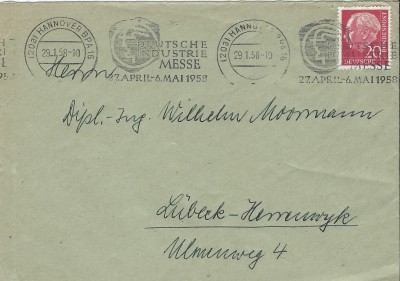 (20a) HANNOVER BPA 16
29.1.58-10
DEUTSCHE
INDUSTRIE
MESSE
27.APRIL-6.MAI 1958
HANNOVER
29.1.58-10
MESSE
27.APRIL-6.MAI 1958
20
DEUTSCHE
BUNDESPOST
Herrn
Dipl.-Ing. Wilhelm Moormann
Lübeck-Herrenwyk
Ulmenweg 4